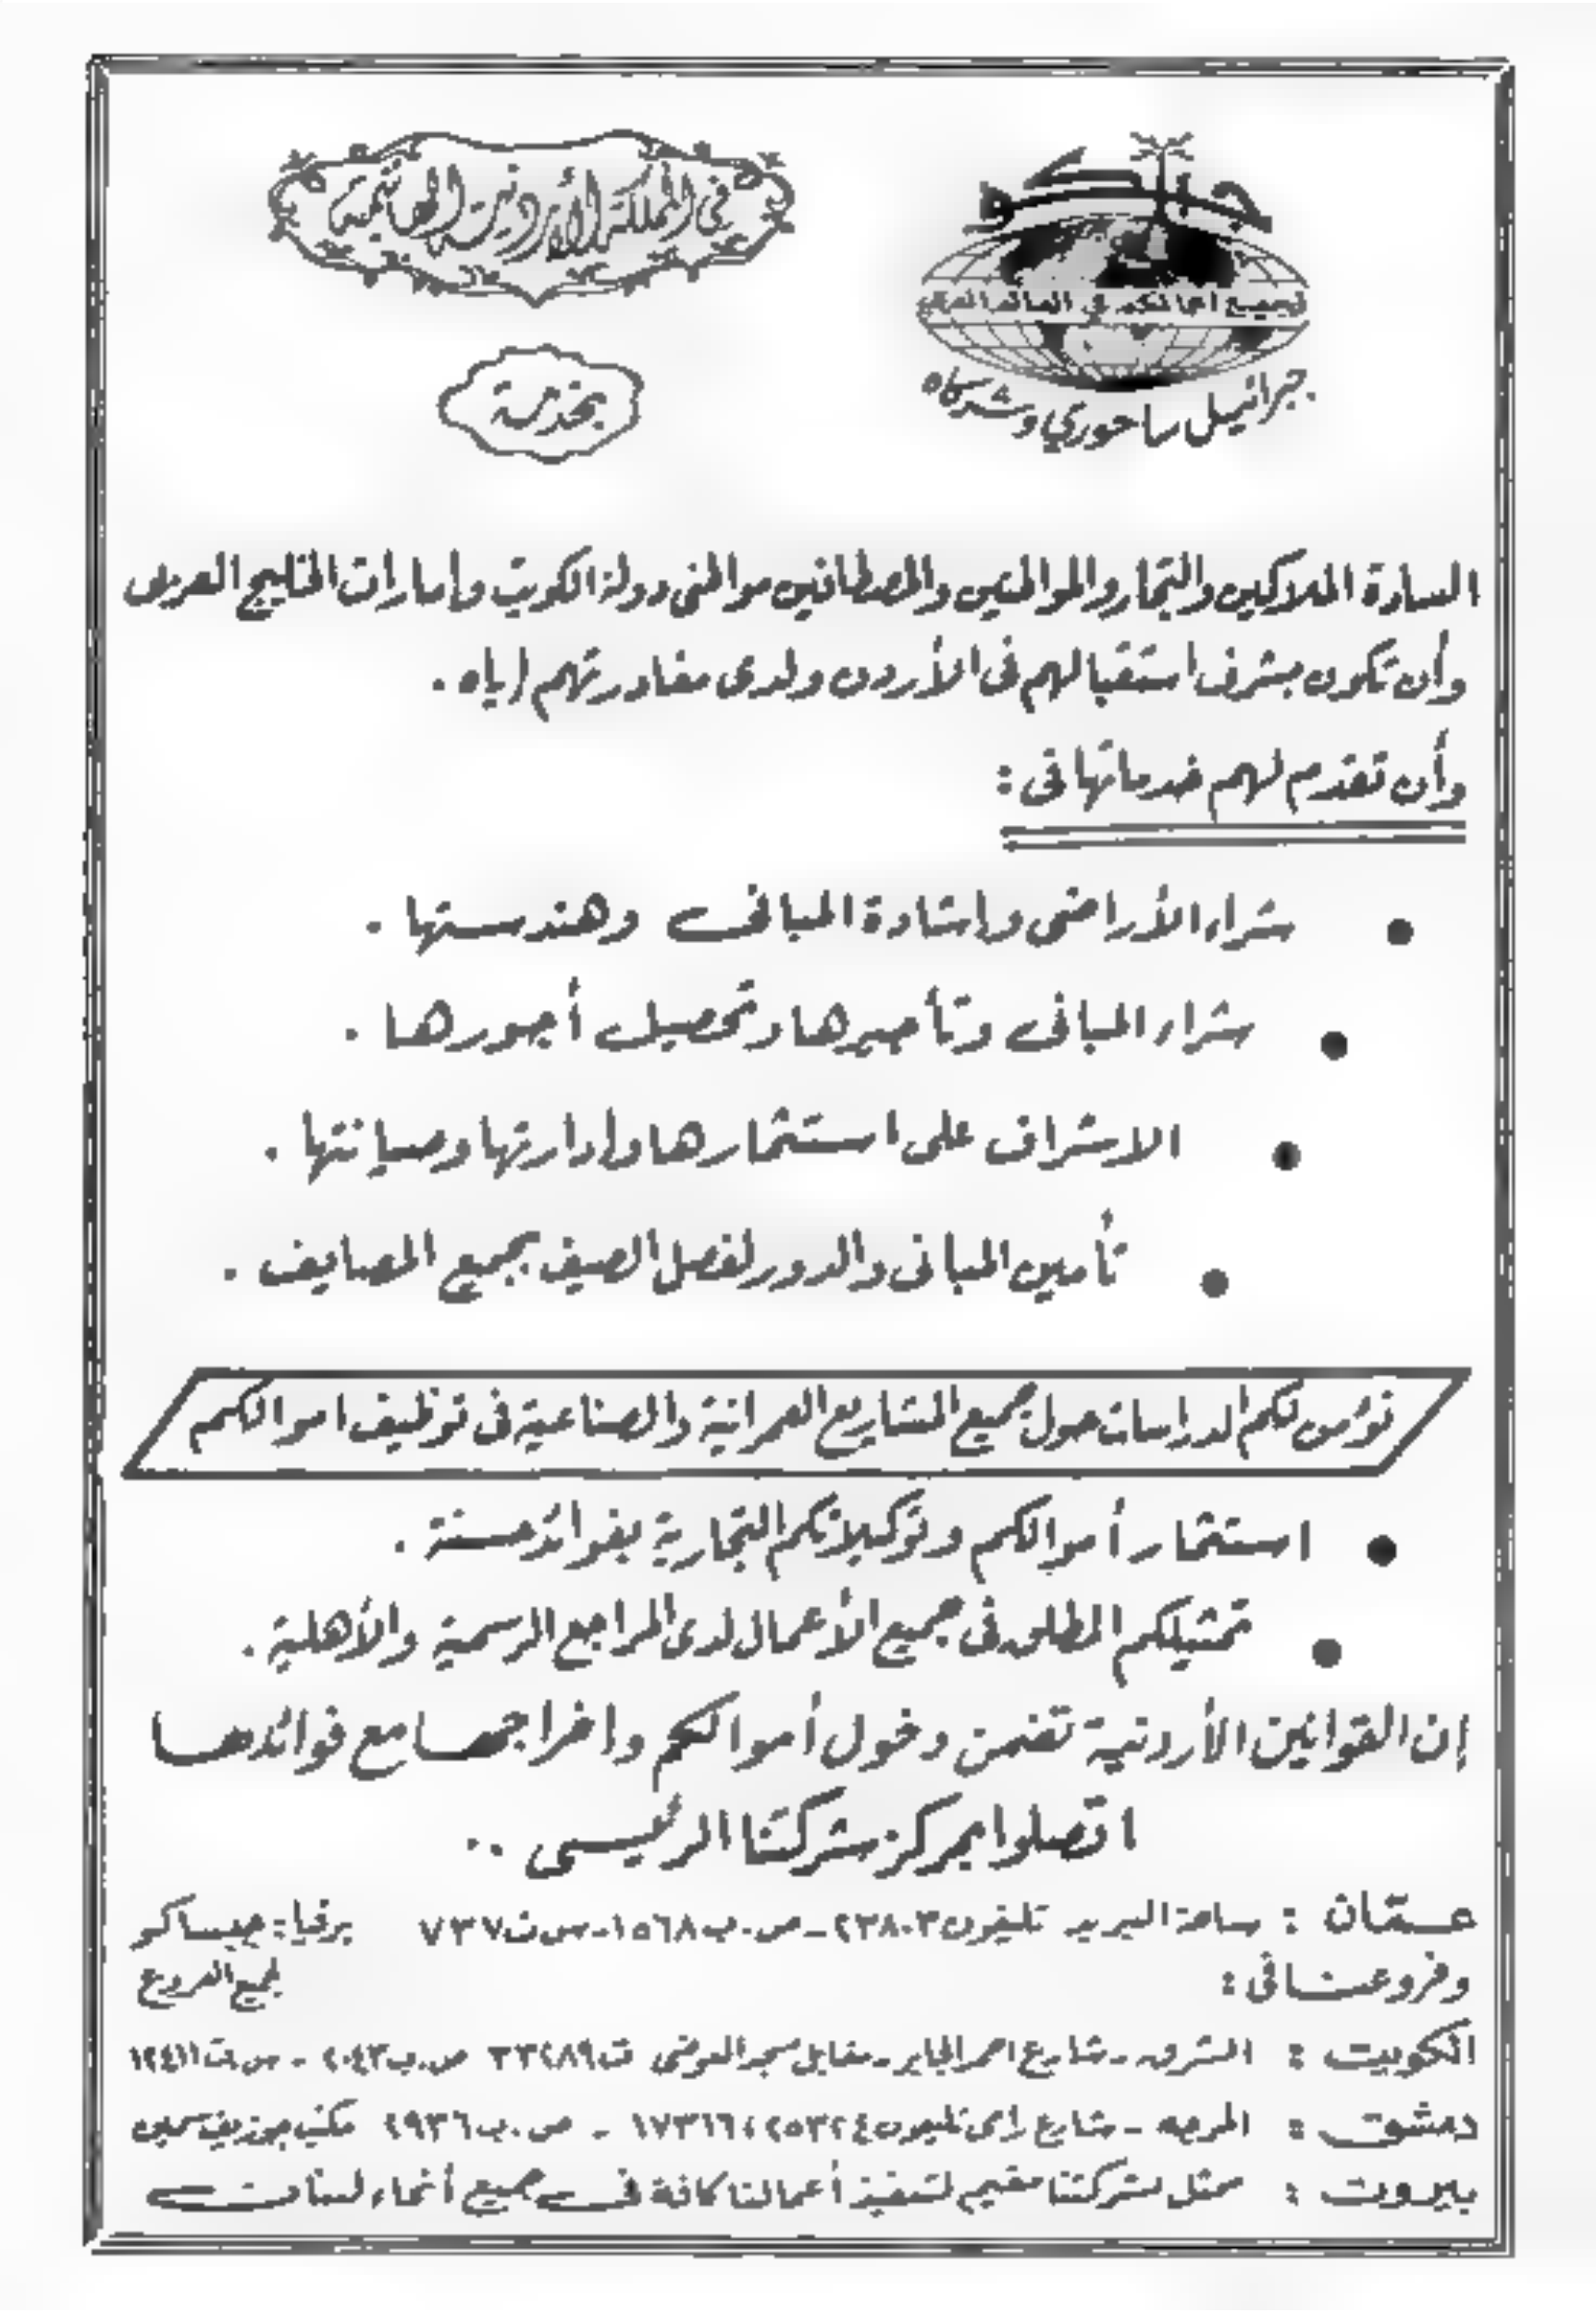 جيساكو
لجميع أعمالكم في العالم العربي
جبرائيل ساحوري وشركاه
في المملكة الأردنية الهاشمية
بخدمة
السادة الملاكين والتجار والمواطنين والمصطافين مواطنى دولة الكويت وإمارات الخليج العربى
وأن تكون بشرف استقبالهم فى الأردن ولدى مغادرتهم إياه .
وأن تقدم لهم خدماتها فى :
• شراء الأراضى واشادة المبانى وهندستها .
• شراء المبانى وتأجيرها وتحصيل أجورها .
• الاشراف على استثمارها وإدارتها وصيانتها .
• تأمين المبانى والدور لفصل الصيف بجميع المصايف .
نؤمن لكم الدراسات حول جميع المشاريع العمرانية والصناعية فى توظيف اموالكم
• استثمار أموالكم وتوكيلاتكم التجارية بفوائد حسنة .
• تمثيلكم المطلق فى جميع الأعمال لدى المراجع الرسمية والأهلية .
إن القوانين الأردنية تضمن دخول أموالكم واخراجها مع فوائدها
اتصلوا بمركز شركتنا الرئيسى ..
عمّان : ساحة البريد تليفون ٢٣٨٠٣ - ص.ب ١٥٦٨ - س ت ٧٣٧ برقيا : جيساكو
وفروعنا فى : لجميع الفروع
الكويت : الشرق - شارع احمد الجابر - مقابل مسجد العوضى ت ٣٣٢٨٩ ص.ب ٢٠٤٣ - س.ت ١٢٤١١
دمشق : المرجه - شارع رامى تليفون ٢٥٣٢٤ ، ١٧٣١٦ - ص.ب ٢٩٣٦ مكتب جوزيف سمين
بيروت : ممثل لشركتنا مقيم لتنفيذ أعمالنا كافة فى جميع أنحاء لبنان